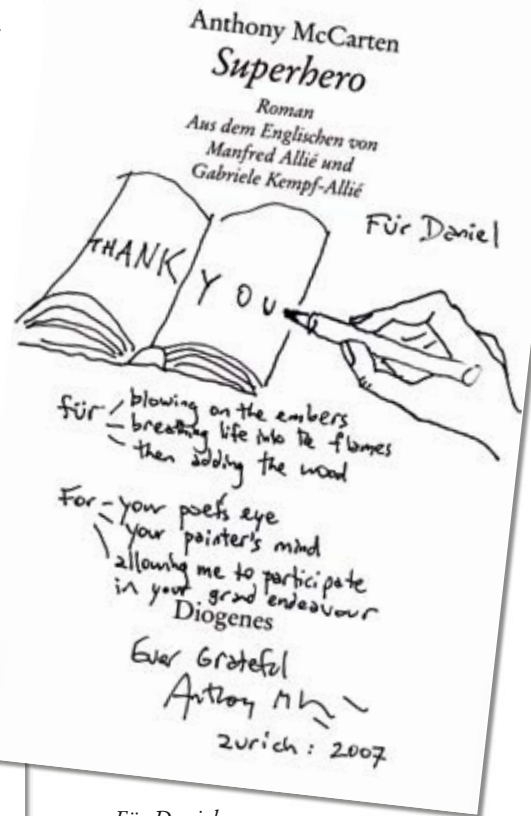 Anthony McCarten
Superhero
Roman
Aus dem Englischen von
Manfred Allié und
Gabriele Kempf-Allié
Für Daniel
THANK YOU
für - blowing on the embers
- breathing life into the flames
- then adding the wood
For - your poet's eye
- your painter's mind
\ allowing me to participate
in your grand endeavour
Diogenes
Ever Grateful
Anthony
Zurich : 2007
Für Daniel